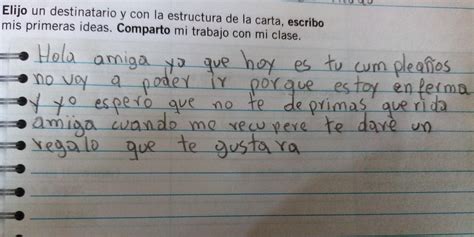 Elijo un destinatario y con la estructura de la carta, escribo
mis primeras ideas. Comparto mi trabajo con mi clase.
Hola amiga ya que hoy es tu cumpleaños
no voy a poder ir porque estoy enferma
y yo espero que no te deprimas querida
amiga cuando me recupere te daré un
regalo que te gustara